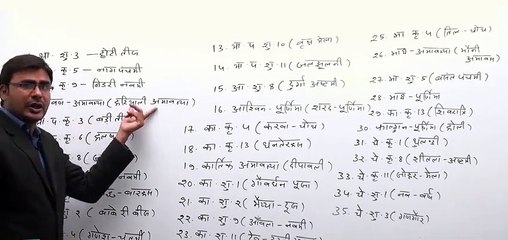 श्रा. शु. 3 — छोटी तीज
कृ. 5 — नाग पंचमी
कृ. 9 — निडरी नवमी
अमावस्या (हरियाली अमावस्या)
कृ. 3 (बड़ी तीज)
कृ. 6 (
कृ. 8 (
2 (बाबे री बीज)
4 (गणेश - चतुर्थी)
13. भा. शु. 10 (
14. भा. शु. 11 (जलझूलनी)
15. आ. शु. 8 (दुर्गा अष्टमी)
16. आश्विन - पूर्णिमा (शरद - पूर्णिमा)
17. का. कृ. 4 (करवा - चौथ)
18. का. कृ. 13 (धनतेरस)
19. कार्तिक अमावस्या (दीपावली)
20. का. शु. 1 (गोवर्धन पूजा)
21. का. शु. 2 (भैय्या - दूज)
22. का. शु. 9 (आँवला - नवमी)
23. का. शु. 11 (देव -
25. मा. कृ. 4 (तिल - चौथ)
26. माघ - अमावस्या (मौनी अमावस)
27. मा. शु. 5 (बसंत पंचमी)
28. माघ - पूर्णिमा
29. फा. कृ. 13 (शिवरात्रि)
30. फाल्गुन - पूर्णिमा (होली)
31. चै. कृ. 1 (धुलण्डी)
32. चै. कृ. 8 (शीतला - अष्टमी)
33. चै. कृ. 11 (जौहर - मेला)
34. चै. शु. 1 (नव - वर्ष)
35. चै. शु. 3 (गणगौर)